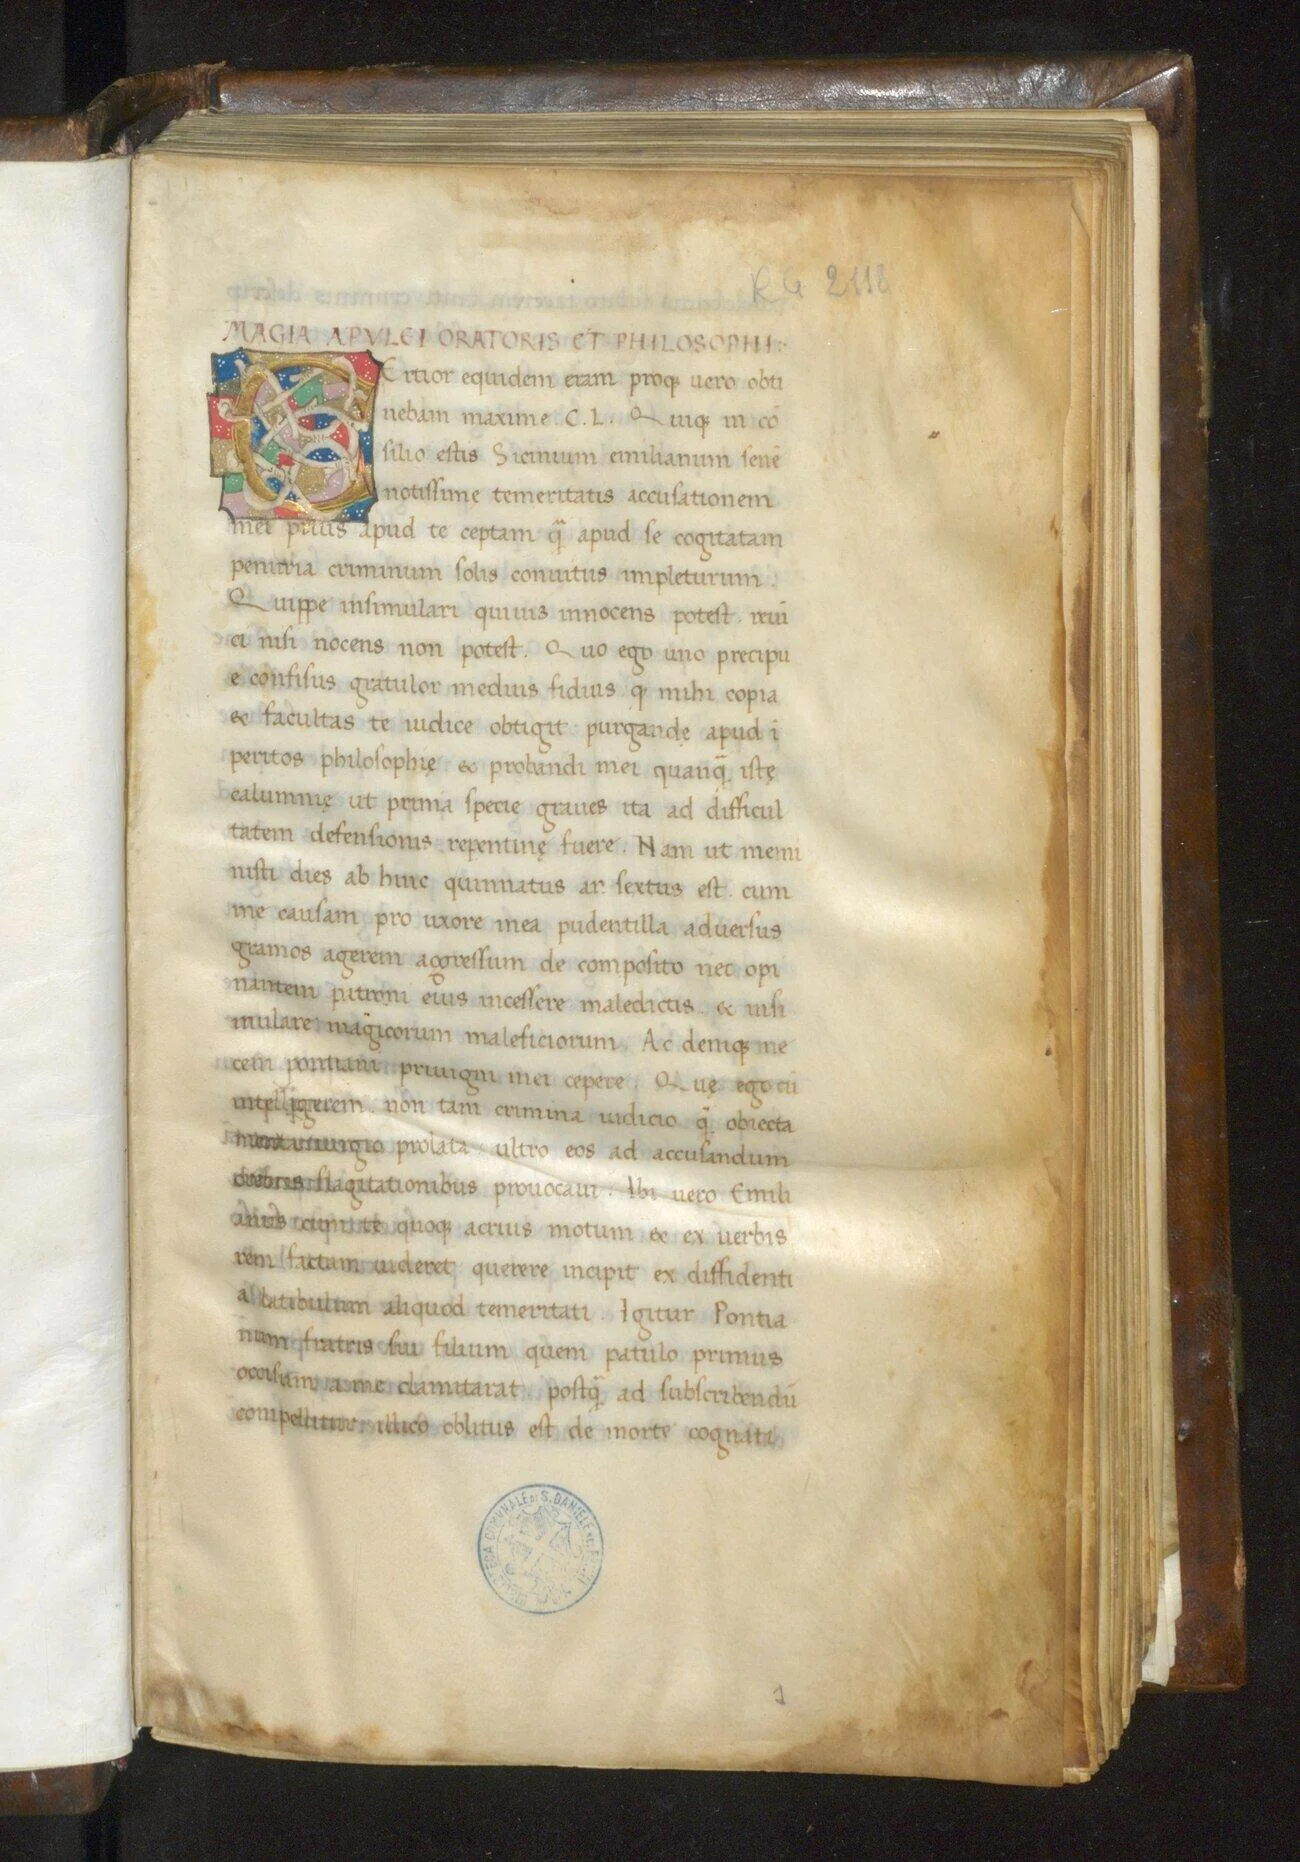 R G 2118
MAGIA APVLEI ORATORIS ET PHILOSOPHI:
CErtior equidem eram proq; uero obti
nebam maxime C. L. Quiq; in cō
silio estis Sicinium emilianum senē
notissimę temeritatis accusationem
mei prius apud te ceptam q̄ apud se cogitatam
penuria criminum solis conuitiis impleturum.
Quippe insimulari quiuis innocens potest. reui
ci nisi nocens non potest. Quo ego uno precipu
e confisus gratulor medius fidius q̨ mihi copia
& facultas te iudice obtigit purgandę apud ī
peritos philosophię & probandi mei quanq̄ istę
calumnię ut prima specie graues ita ad difficul
tatem defensionis repentinę fuere. Nam ut memi
nisti dies ab hinc quinnatus ar sextus est cum
me causam pro uxore mea pudentilla aduersus
granios agerem aggressum de composito nec opi
nantem patroni eius incessere maledictis & insi
mulare magicorum maleficiorum. Ac deniq; ne
cem pontiani priuigni mei cepere. Quę ego cū
intelligerem non tam crimina iudicio q̄ obiecta
prolata ultro eos ad accusandum
crebris flagitationibus prouocaui. Ibi uero Emili
anus cum te quoq; acrius motum & ex uerbis
rem factam uideret querere incipit ex diffidenti
a latibulum aliquod temeritati. Igitur Pontia
num fratris sui filium quem patulo primus
occisum a me clamitarat postq̄ ad subscribendū
compellitur illico oblitus est de morte cognati
BIBLIOTECA COMVNALE DI S. DANIELE DEL FRIULI
1